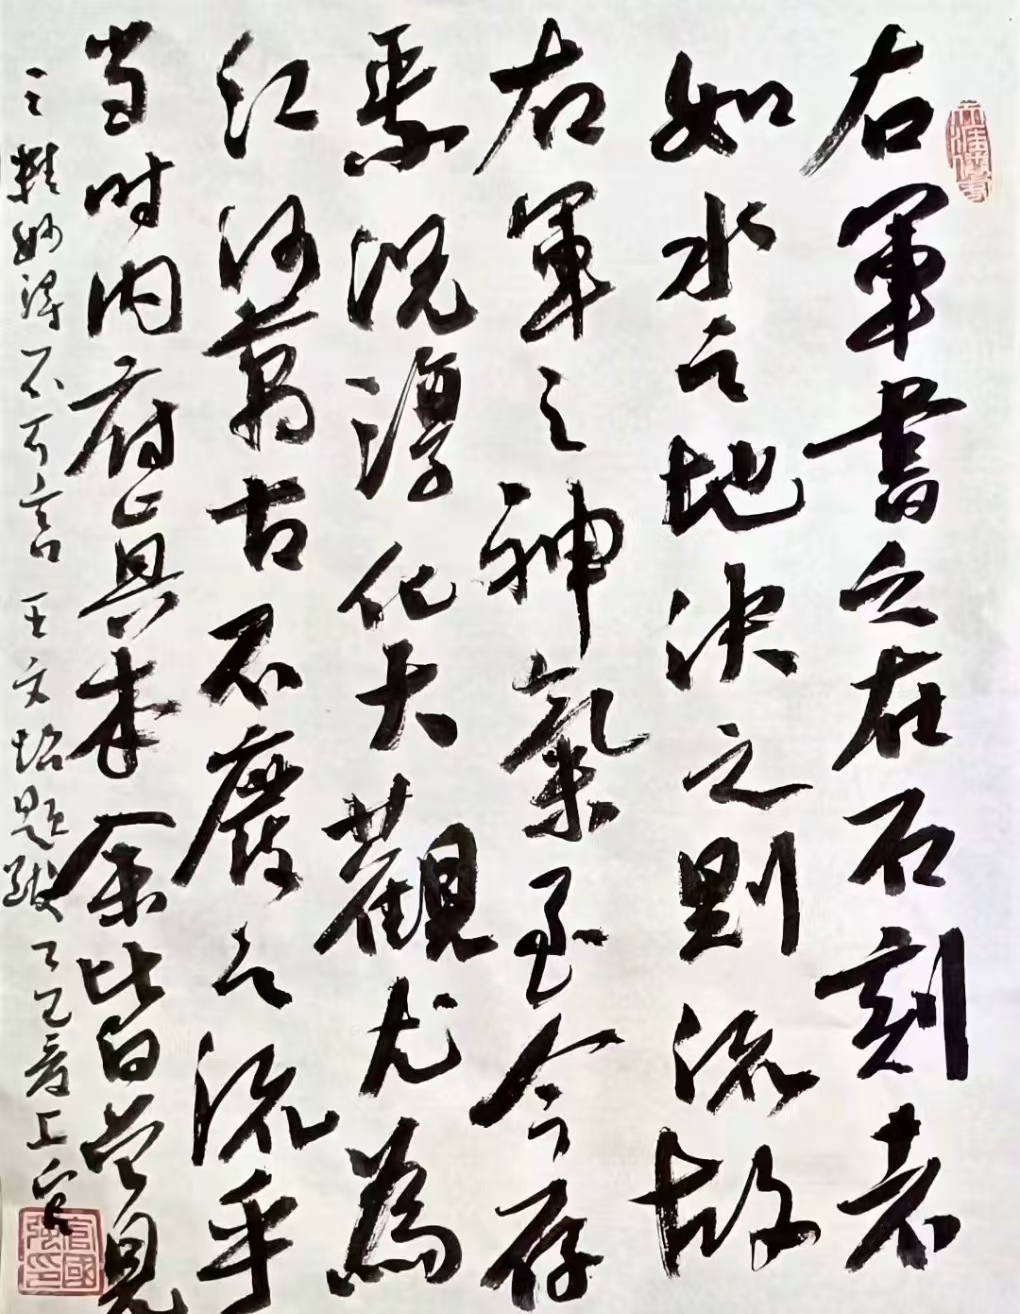 右軍書之在石刻者
如水之地决之則流故
右軍之神氣至今存
焉況淳化大觀尤為
江河萬古不廢之流乎
当时内府真本余皆曾見
之精妙得不可言王文治題跋乙巳夏上官